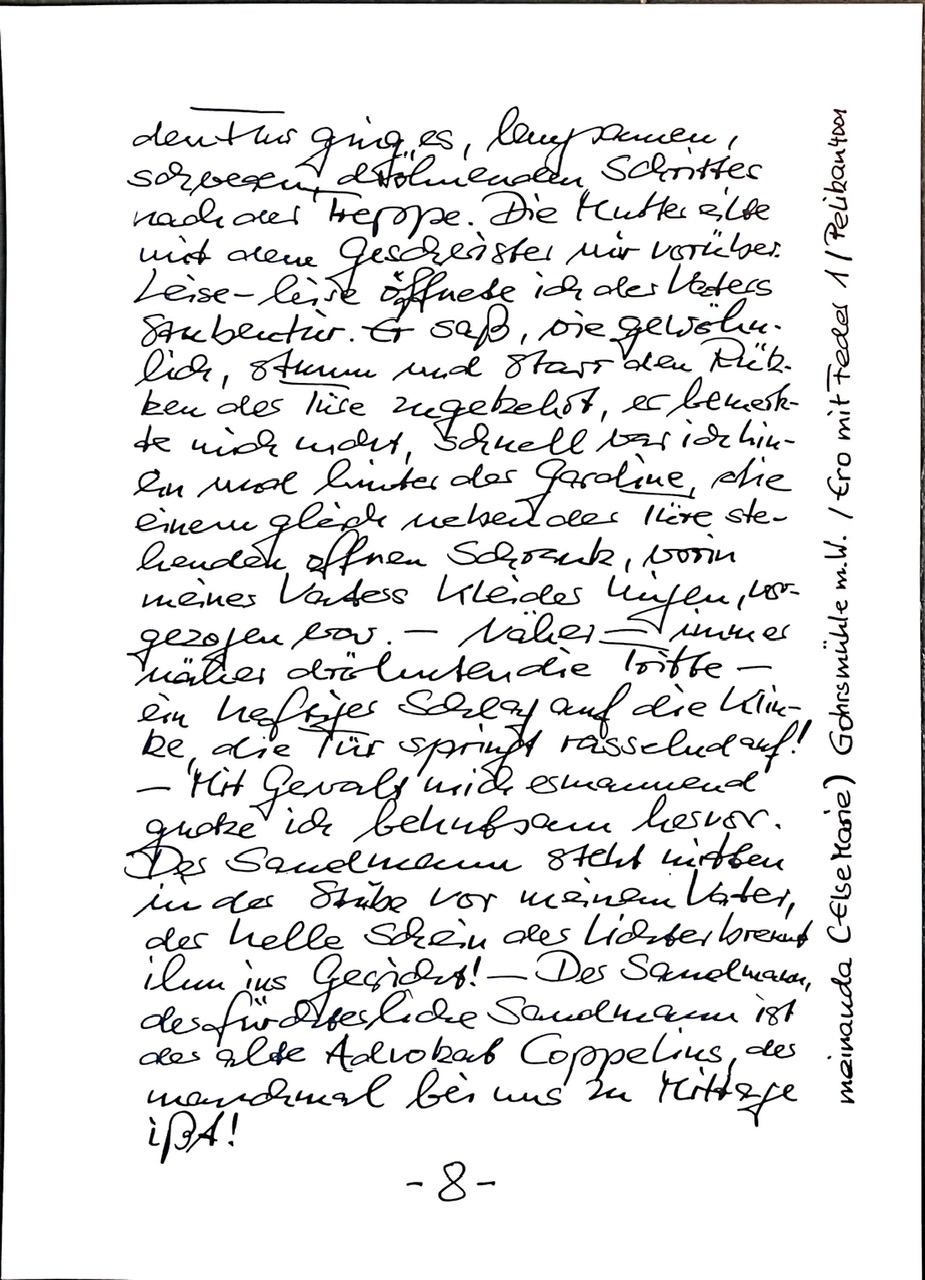 den Flur ging es, langsamen,
schweren, dröhnenden Schrittes
nach der Treppe. Die Mutter eilte
mit dem Geschwister mir vorüber.
Leise – leise öffnete ich des Vaters
Stubentür. Er saß, wie gewöhn-
lich, stumm und starr den Rük-
ken der Türe zugekehrt, er bemerk-
te mich nicht, schnell war ich hin-
ein und hinter der Gardine, die
einem gleich neben der Türe ste-
henden offnen Schrank, worin
meines Vaters Kleider hingen, vor-
gezogen war. – Näher – immer
näher dröhnten die Tritte –
ein heftiger Schlag auf die Klin-
ke, die Tür springt rasselnd auf!
– Mit Gewalt mich ermannend
gucke ich behutsam hervor.
Der Sandmann steht mitten
in der Stube vor meinem Vater,
der helle Schein der Lichter brennt
ihm ins Gesicht! – Der Sandmann,
der fürchterliche Sandmann ist
der alte Advokat Coppelius, der
manchmal bei uns zu Mittage
ißt!
- 8 -
meinanda (Else Marie) Gohrsmühle m.W. / Ero mit Feder 1 / Pelikan 4001